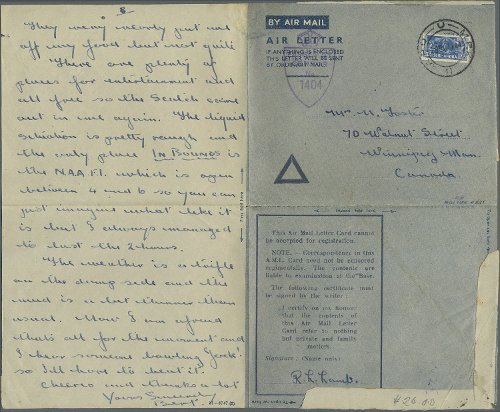 8
They very nearly put me
off my food but not quite
There are plenty of
places for entertainment and
all free so the Scotch comes
out in me again. The liquid
situation is pretty rough and
the only place IN BOUNDS is
the N.A.A.F.I. which is open
between 4 and 6 so you can
just imagine what like it
is but I always managed
to last the 2 hours.
The weather is a trifle
on the damp side and the
mud is a bit thinner than
usual. Now I am afraid
thats all for the moment and
I hear someone bawling
so I'll have to beat it.
Cheerio and thanks a lot
Yours Sincerely
Bert.
BY AIR MAIL
AIR LETTER
IF ANYTHING IS ENCLOSED
THIS LETTER WILL BE SENT
BY ORDINARY MAIL
1404
Mr. N. Foster
70 Walnut Street
Winnipeg Man.
Canada.
This Air Mail Letter Card cannot
be accepted for registration.
NOTE. — Correspondence in this
A.M.L. Card need not be censored
regimentally. The contents are
liable to examination at the Base.
The following certificate must
be signed by the writer:—
I certify on my honour
that the contents of
this Air Mail Letter
Card refer to nothing
but private and family
matters.
Signature (Name only)
R. L. Lamb.